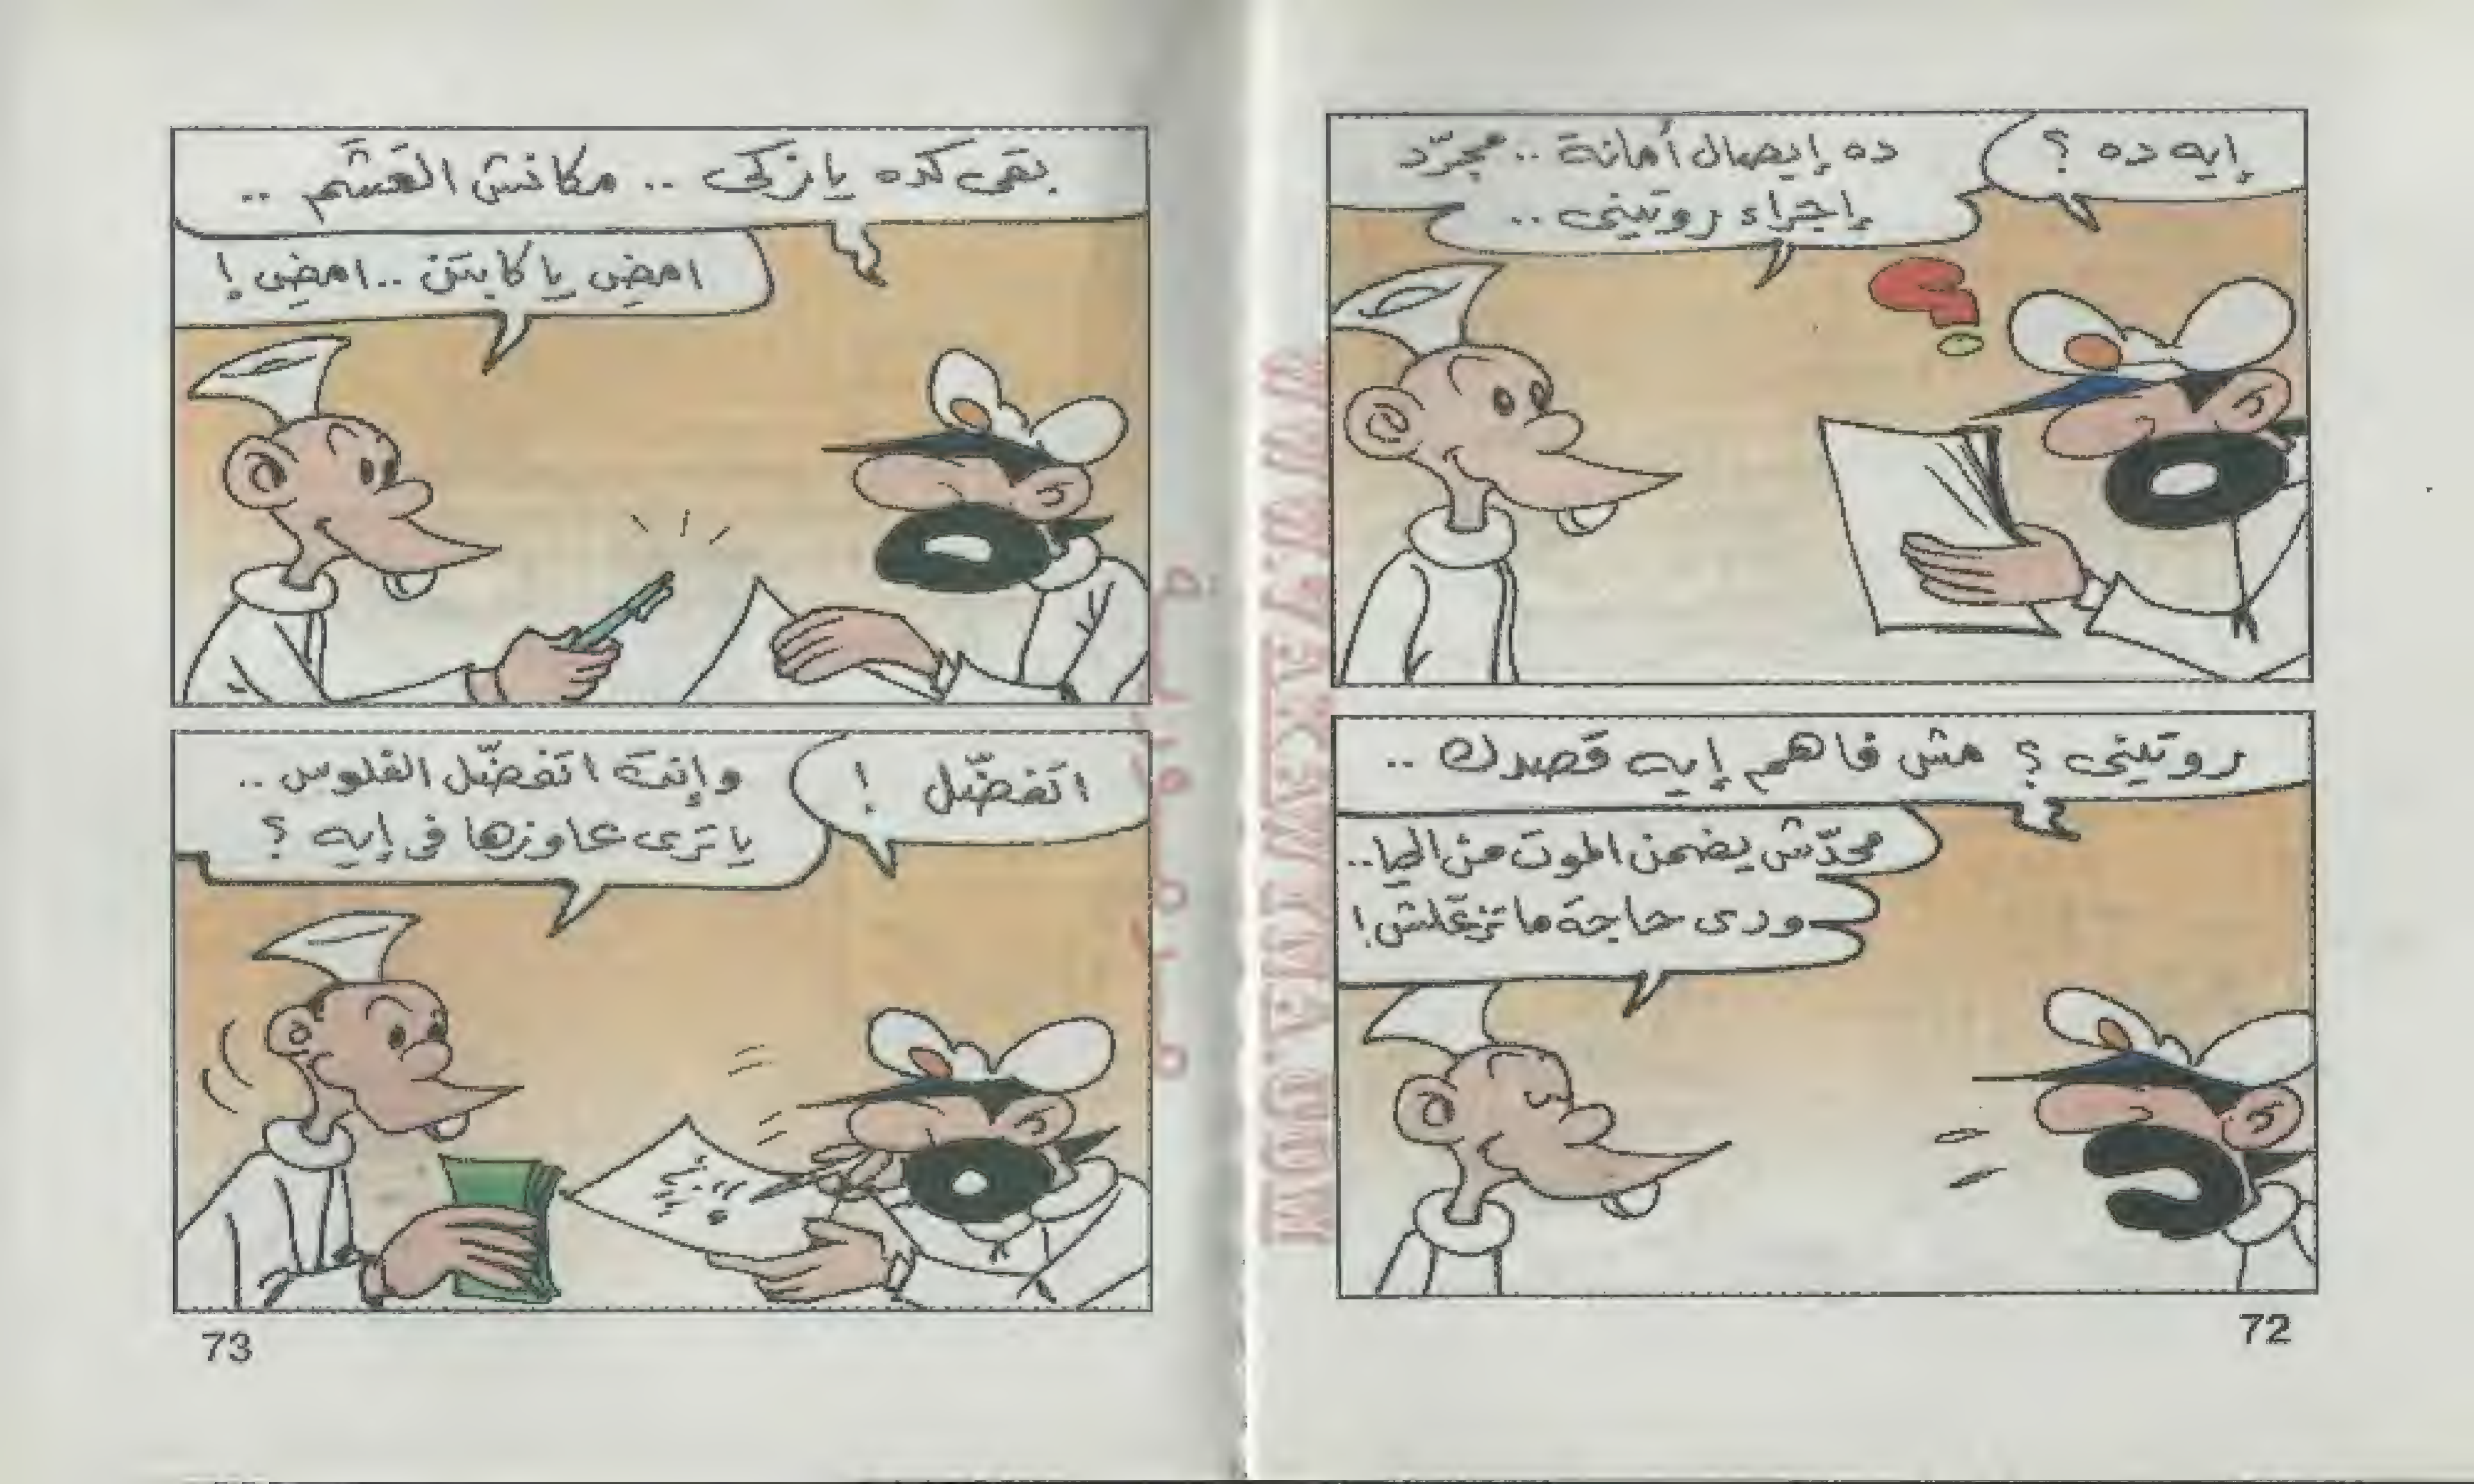 إيه ده ؟
ده إيصال أمانة .. مجرّد
إجراء روتينى ..
روتينى ؟ مش فاهم إيه قصدك ..
محدّش يضمن الموت من الحيا ..
ودى حاجة ما تزعّلش !
72
بقى كده يا زكى .. مكانش العَشَم ..
امضِى يا كابتن .. امضِى !
اتفضّل !
وإنت اتفضّل الفلوس ..
يا ترى عاوزها فى إيه ؟
73